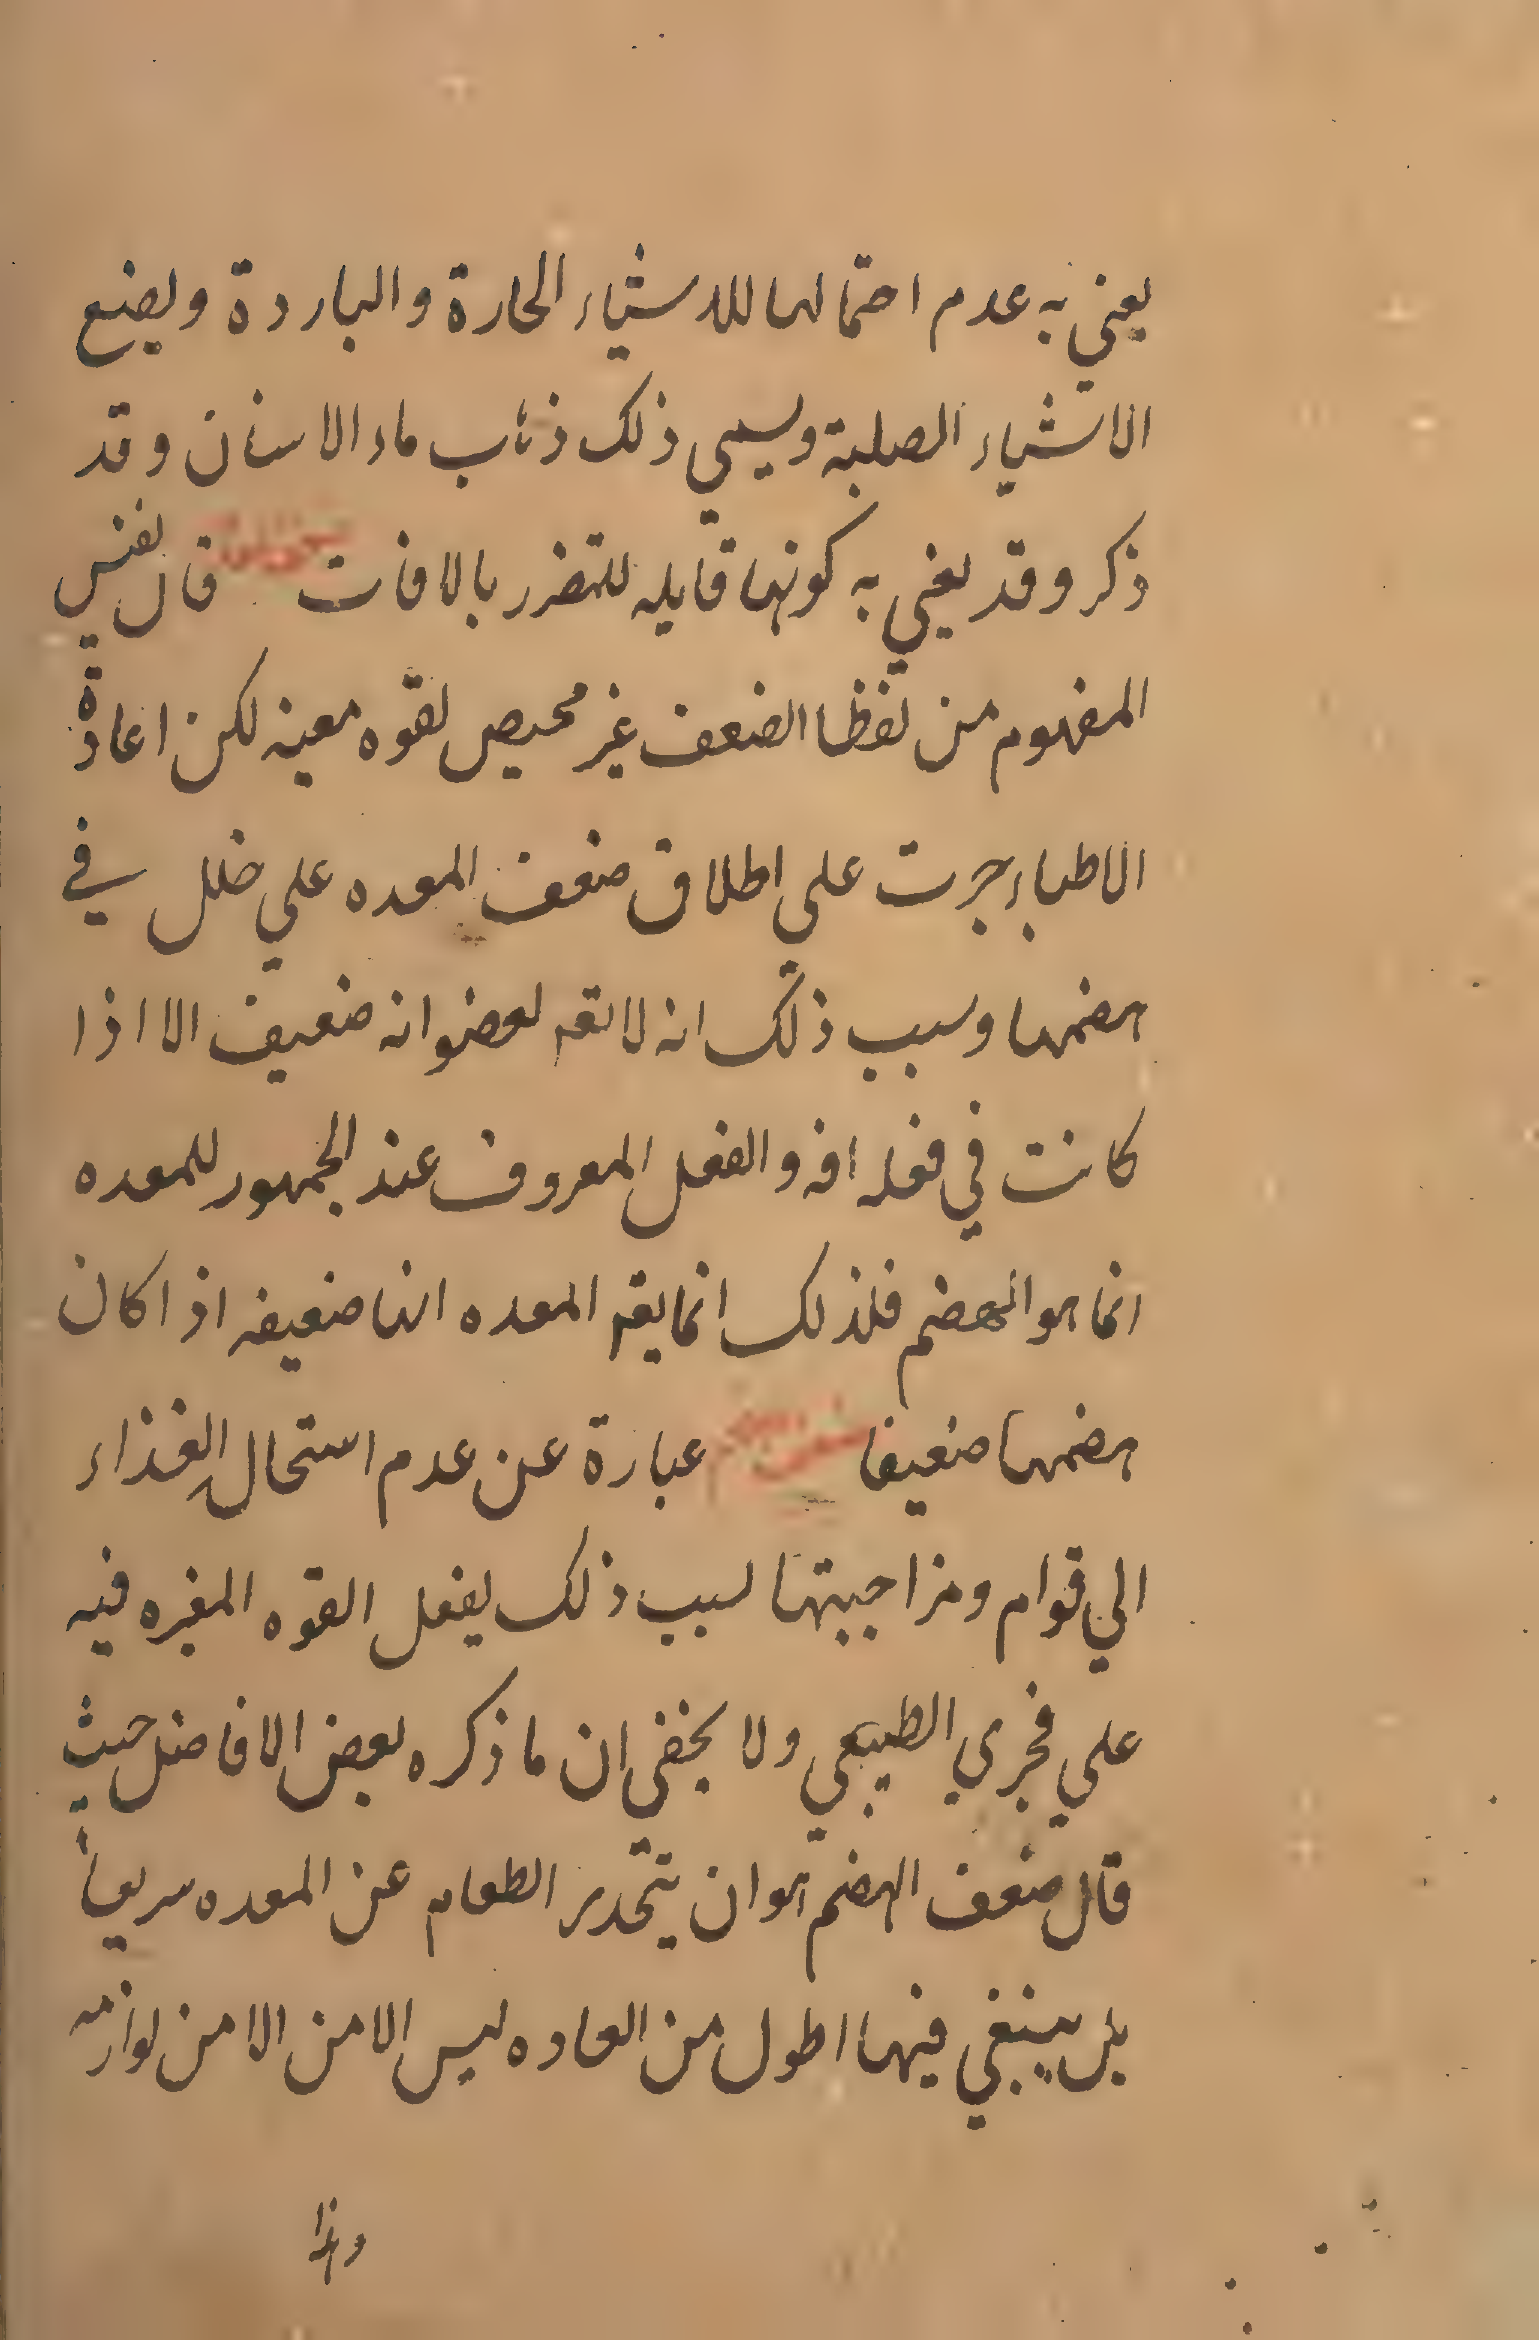 يعني به عدم احتمالها للاشياء الحارة والباردة ولصنع
الاشياء الصلبة ويسمي ذلك ذئاب ماء الاسنان وقد
ذكر وقد يعني به كونها قابله للتضرر بالافات قال نفس
المفهوم من لفظ الضعف غير محيص لقوه معينه لكن اعادة
الاطباء جرت علي اطلاق ضعف المعده علي خلل في
هضمها وسبب ذلك انه لا لعضو انه ضعيف الا اذا
كانت في فعله افه والفعل المعروف عند الجمهور للمعده
انما هو الهضم فلذلك انما المعده انها ضعيفه اذا كان
هضمها ضعيفا عبارة عن عدم استحال الغذاء
الي قوام ومزاجيتها لسبب ذلك لفعل القوه المغيره فيه
علي مجري الطبيعي ولا يخفي ان ما ذكره بعض الافاضل حيث
قال ضعف الهضم هو ان يتحدر الطعام عن المعده سريعا
بل يبنغي فيها اطول من العاده ليس الا من الا من لوازمه
وهذا